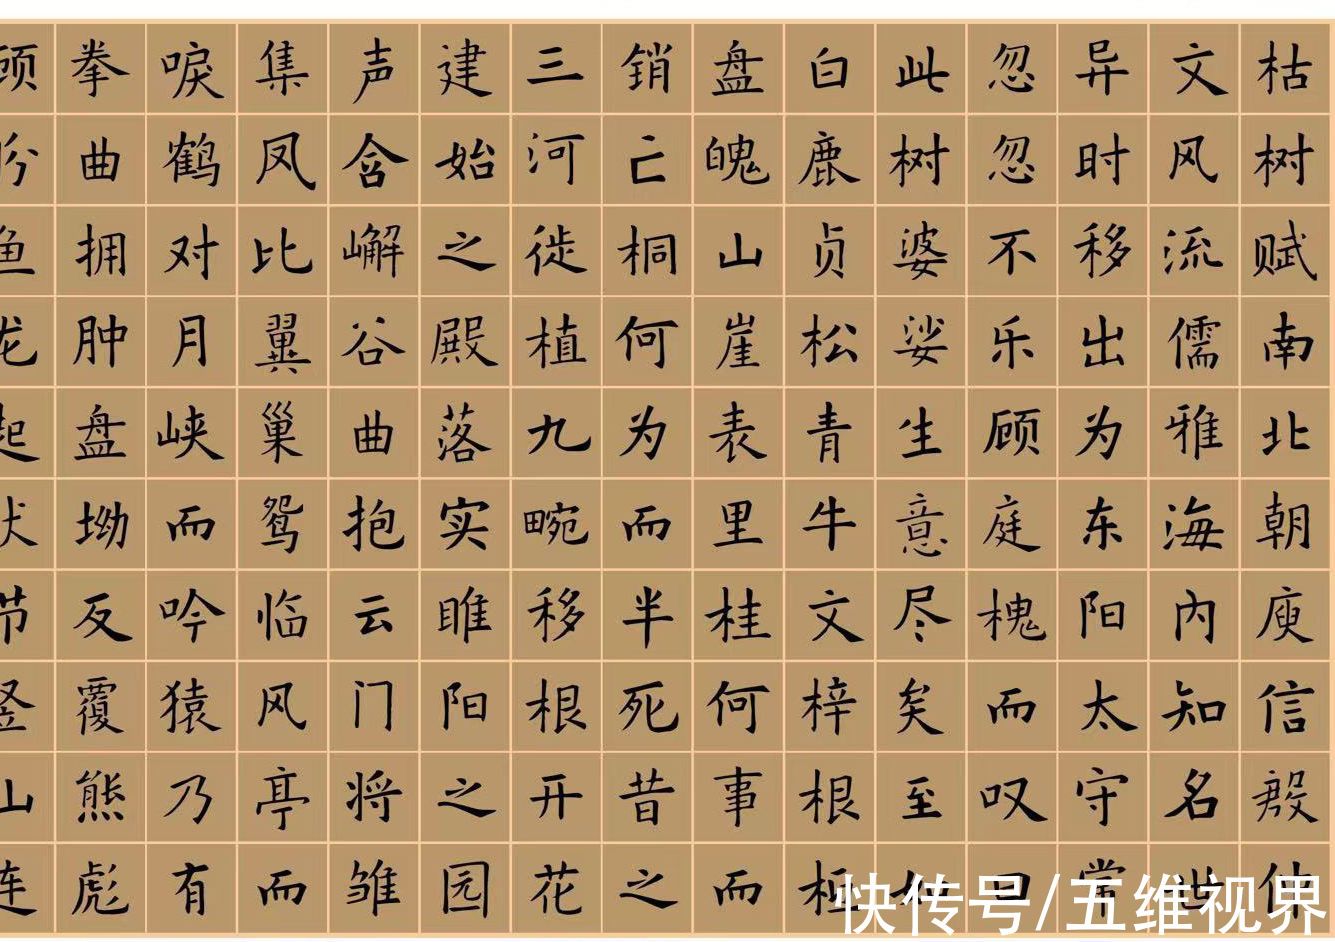 枯树赋南北朝庾信殷仲
文风流儒雅海内知名世
异时移出为东阳太守常
忽忽不乐顾庭槐而叹曰
此树婆娑生意尽矣至如
白鹿贞松青牛文梓根柢
盘魄山崖表里桂何事而
销亡桐何为而半死昔之
三河徙植九畹移根开花
建始之殿落实睢阳之园
声含嶰谷曲抱云门将雏
集凤比翼巢鸳临风亭而
唳鹤对月峡而吟猿乃有
拳曲拥肿盘坳反覆熊彪
顾盼鱼龙起伏节竖山连
快传号/五维视界